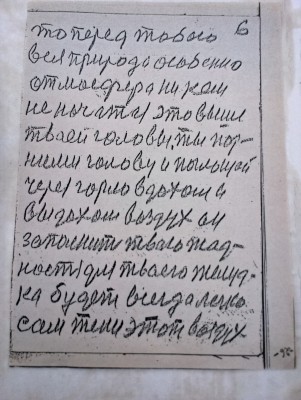 6
то перед тобою
вся природа особенно
атмосфера ни кем
не початая это выше
твоей головы, ты под-
ними голову и
через горло вдохом и
выдохом воздух он
твою жад-
ность для твоего желуд-
ка будет всегда легко
сам этот воздух